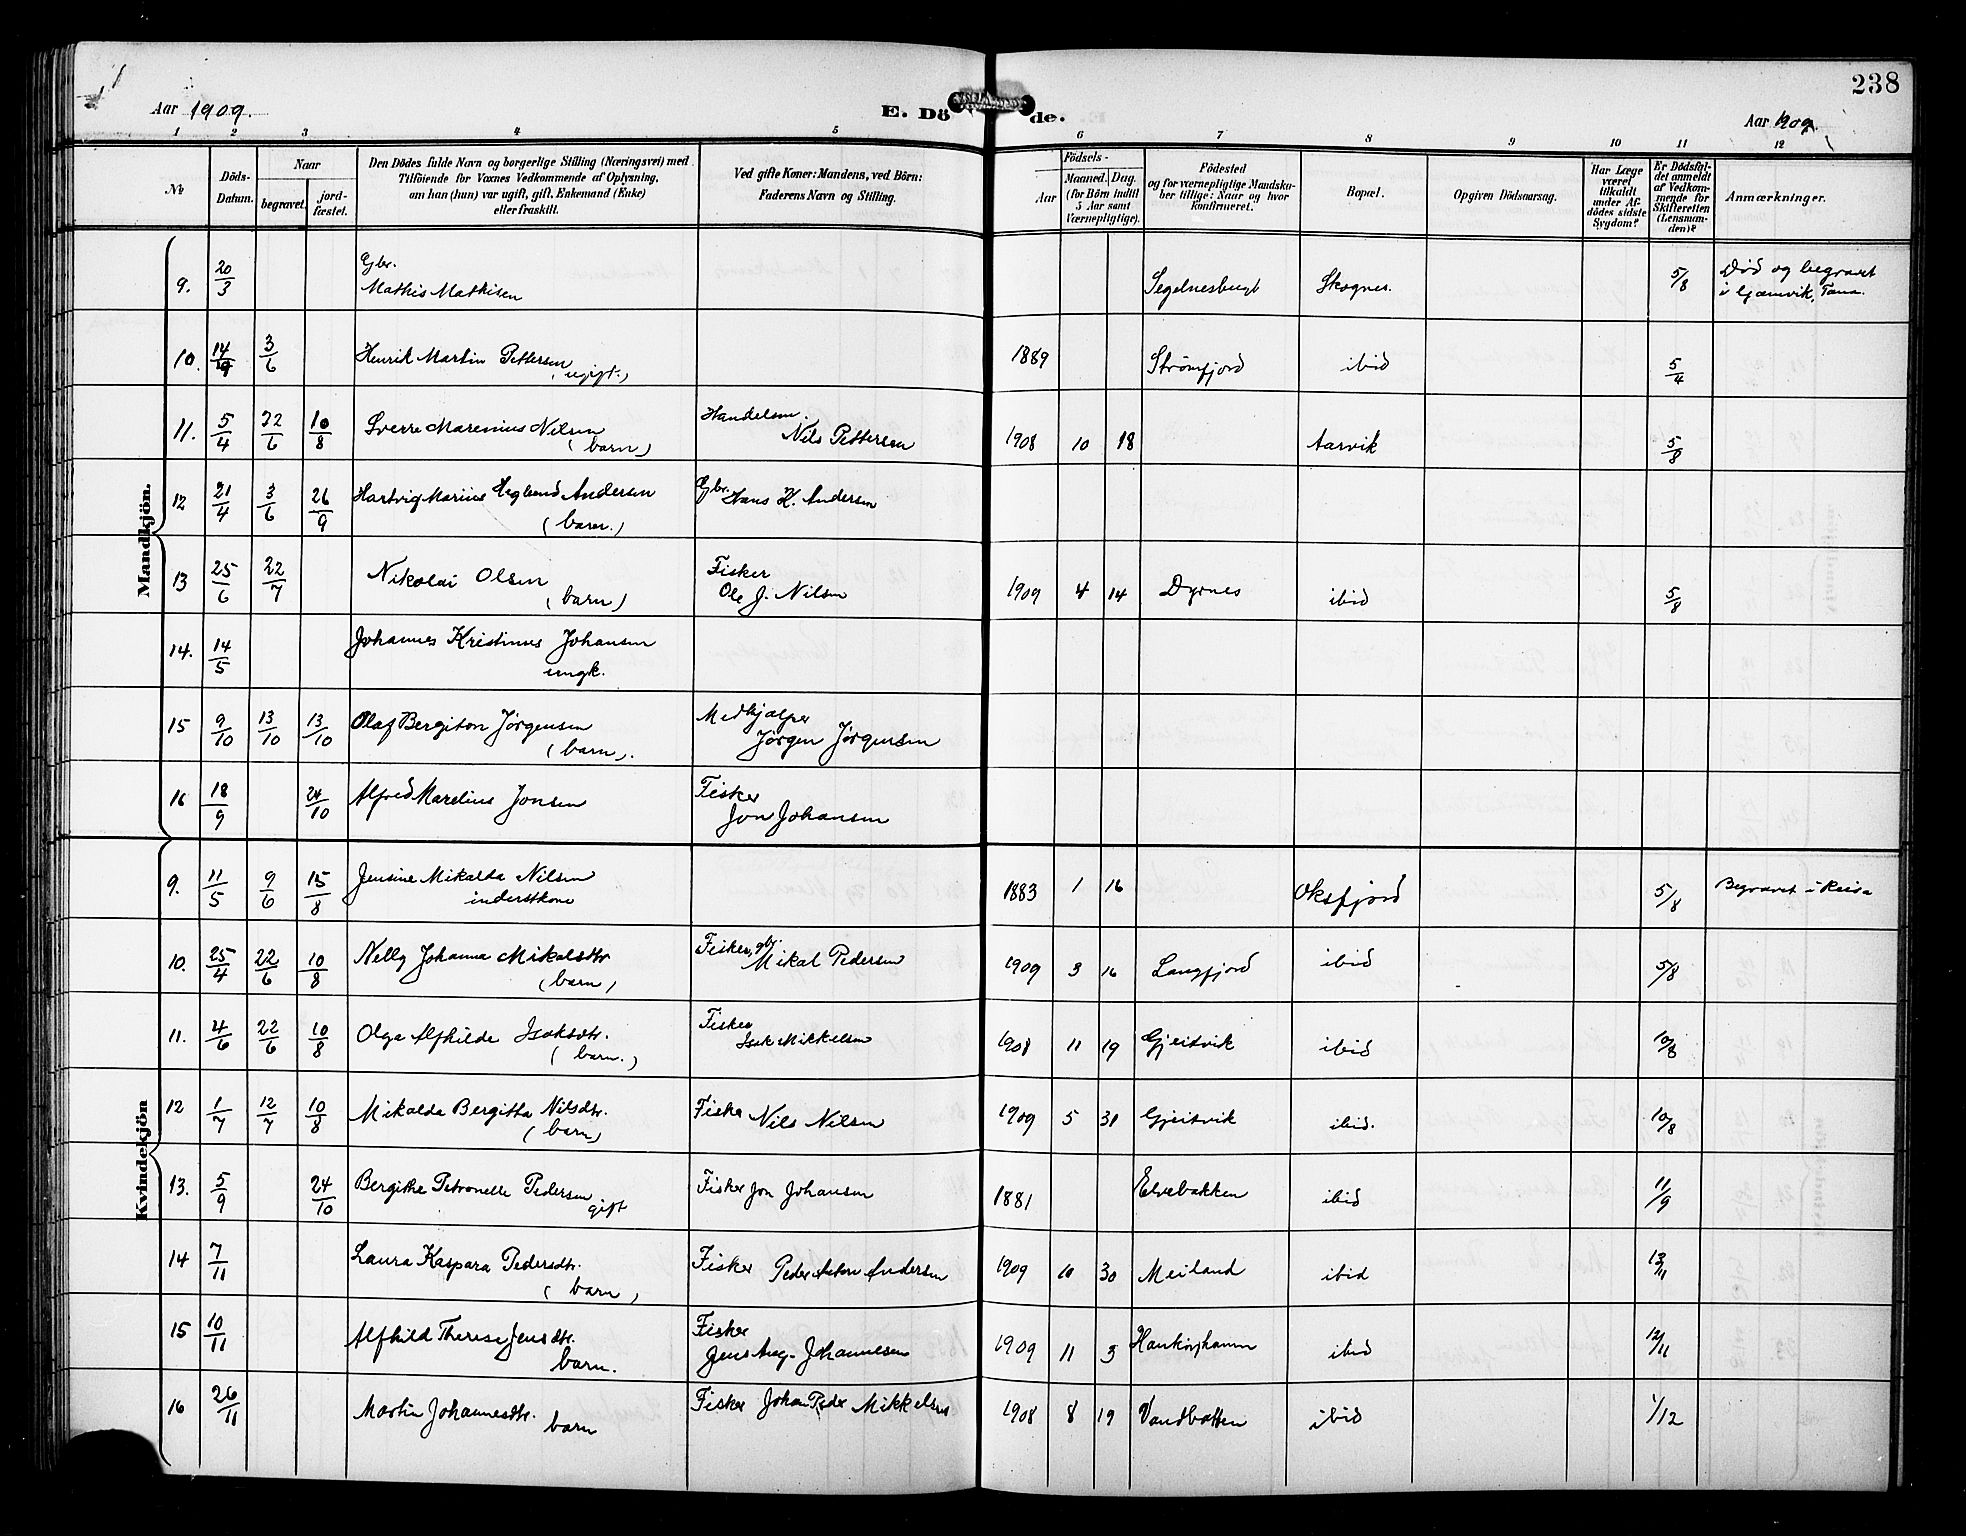 238
Aar 1909. E. Döde. Aar 1909.
1 2 3 4 5 6 7 8 9 10 11 12
No
Döds-Datum.
Naar
begravet.
jordfæstet.
Den Dödes fulde Navn og borgerlige Stilling (Næringsvei) med
Tilföiende for Voxnes Vedkommende af Oplysning,
om han (hun) var ugift, gift, Enkemand (Enke)
eller fraskilt.
Ved gifte Koner: Mandens, ved Börn:
Faderens Navn og Stilling.
Födsels-
Aar
Maaned. Dag.
(for Börn indtil
5 Aar samt
Værnepligtige).
Födested
og for værnepligtige Mandska-
ber tillige: Naar og hvor
konfirmeret.
Bopæl.
Opgiven Dödsaarsag.
Har Læge
været
tilkaldt
under Af-
dödes sidste
Sygdom?
Er Dödsfal-
det anmeldt
af Vedkom-
mende for
Skifteretten
(Lensman-
den)?
Anmærkninger.
Mandkjön.
9. 20/3 Gbr. Segelnesbugt Skognes. 5/8 Död og begravet
Mathis Mathisen i Gamvik, Tana.
10. 14/4 3/6 Henrik Martin Pettersen 1889 Strømfjord ibid 5/4
(ugift.)
11. 5/4 22/6 10/8 Sverre Marenius Nilsen Handelsm. 1908 10 18 Aarvik 5/8
(barn) Nils Pettersen
12 21/4 3/6 26/9 Hartvig Marius Heglund Andersen Gbr. Hans K. Andersen
(barn.)
13 25/6 22/7 Nikolai Olsen Fisker 1909 4 14 Dyrnes ibid 5/8
(barn) Ole J. Nilsen
14. 14/5 Johannes Kristinus Johansen
ungk.
15 9/10 13/10 13/10 Olaf Bergiton Jörgensen Medhjælper
(barn). Jörgen Jörgensen
16 18/9 24/10 Alfred Marelius Jonsen Fisker
Jon Johansen
Kvindekjön
9. 11/5 9/6 15/8 Jensine Mikalda Nilsen 1883 1 16 Oksfjord 5/8 Begravet i Reisa
inderstkone
10. 25/4 22/6 10/8 Nelly Johanna Mikalsdtr Fisker, gbr. 1909 3 16 Langfjord ibid 5/8
(barn) Mikal Pedersen
11. 4/6 22/6 10/8 Olga Alfhilde Isaksdtr. Fisker 1908 11 19 Gjeitvik ibid 10/8
(barn.) Isak Mikkelsen
12 1/7 12/7 10/8 Mikalda Bergitta Nilsdtr. Fisker Nils Nilsen 1909 5 31 Gjeitvik ibid. 10/8
(barn)
13. 5/9 24/10 Bergithe Petronelle Pedersen Fisker Jon Johansen 1881 Elvebakken ibid 11/9
gift
14 7/11 Laura Kaspara Pedersdtr. Fisker Peder Anton Andersen 1909 10 30 Meiland ibid 13/11
(barn)
15 10/11 Alfhild Therese Jensdtr. Fisker 1909 11 3 ibid 12/11
barn. Jens Aug. Johannesen
16 26/11 Martin Johannesdtr. Fisker Johan Peder Mikkelsen 1908 8 19 Vandbotten ibid 1/12
barn